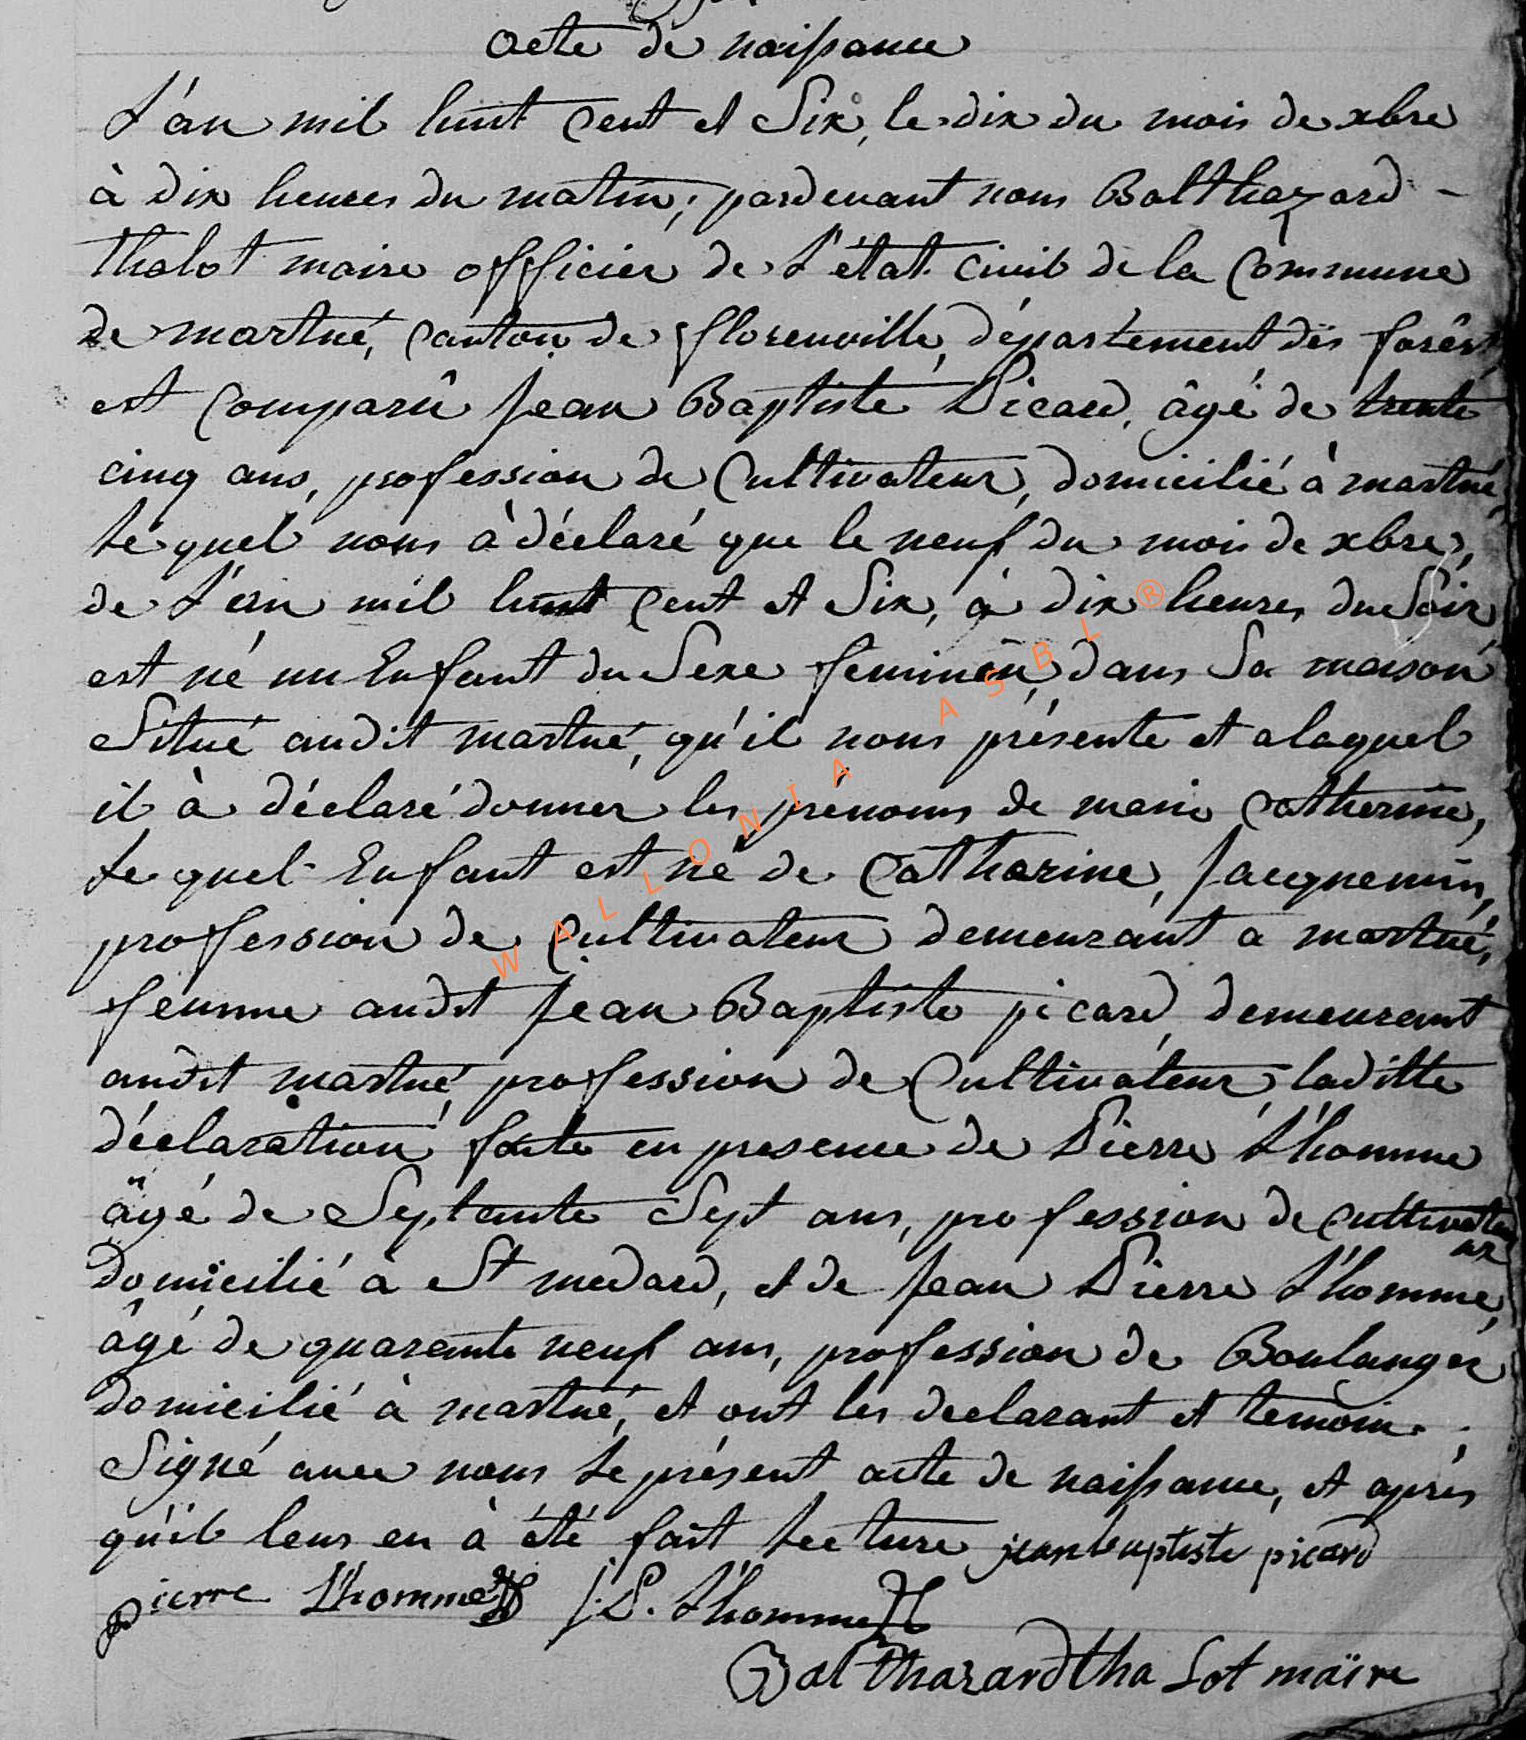 acte de naissance
L'an mil huit cent et Six, le dix du mois de xbre
à dix heures du matin, pardevant nous Balthazard -
thalot maire officier de L'état civil de la Commune
de martué, canton de florenville, département des forêts
est comparû Jean Baptiste Picard, âgé de trente
cinq ans, profession de Cultivateur, domicilié à martué,
Le quel nous à déclaré que le neuf du mois de xbre,
de L'an mil huit cent et Six, à dix heures du Soir
est né un Enfant du Sexe feminin, dans Sa maison
Situé audit martué, qu'il nous présente et alaquel
il à déclaré donner les prénoms de marie catherine,
Le quel Enfant est né de Catharine, Jacquemin,
profession de Cultivateur demeurant a martué,
femme audit Jean Baptiste picard, demeurant
audit martué, profession de Cultivateur, laditte
déclaration faite en presence de Pierre L'homme
âgé de Septante Sept ans, profession de cultivateur
domicilié à St medard, et de Jean Pierre L'homme,
âgé de quarante neuf ans, profession de Boulanger
domicilié à martué, et ont les declarant et temoin
Signé avec nous Le présent acte de naissance, et après
qu'il leur en à été fait Lecture jeanbaptiste picard
pierre L'homme J.P. L'homme
Balthazard thalot maire
WALLONIA ASBL ®